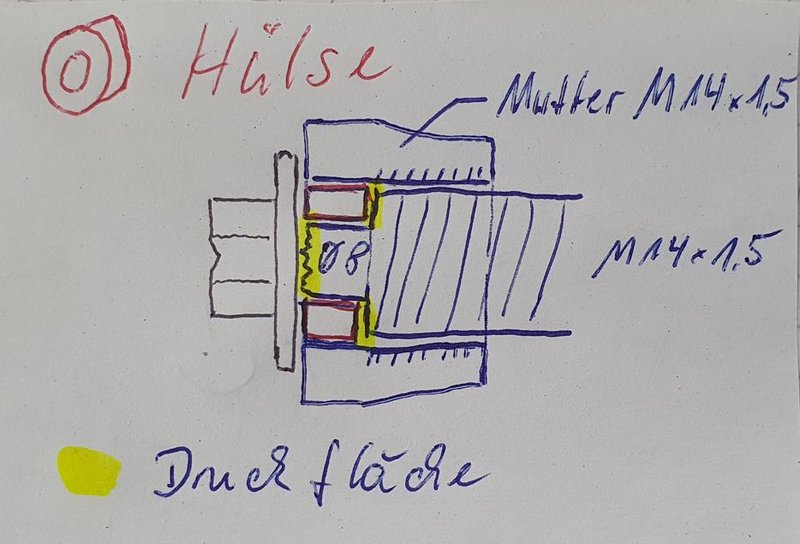 Hülse
Mutter M14x1,5
Ø8
M14x1.5
Druckfläche